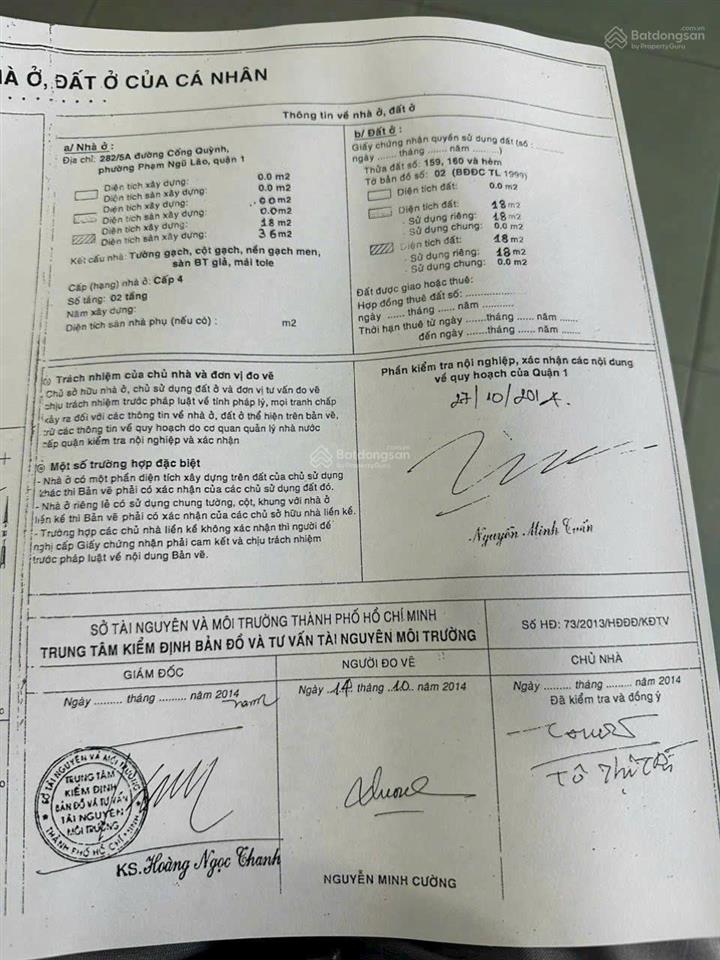 Batdongsan
by PropertyGuru
.com.vn
NHÀ Ở, ĐẤT Ở CỦA CÁ NHÂN
Thông tin về nhà ở, đất ở
a/ Nhà ở :
Địa chỉ: 282/5A đường Cống Quỳnh,
phường Phạm Ngũ Lão, quận 1
Diện tích xây dựng: 0.0 m2
Diện tích sàn xây dựng: 0.0 m2
Diện tích xây dựng: 0.0 m2
Diện tích sàn xây dựng: 0.0 m2
Diện tích xây dựng: 18 m2
Diện tích sàn xây dựng: 36 m2
Kết cấu nhà: Tường gạch, cột gạch, nền gạch men,
sàn BT giả, mái tole
Cấp (hạng) nhà ở: Cấp 4
Số tầng: 02 tầng
Năm xây dựng:
Diện tích sàn nhà phụ (nếu có) : m2
b/ Đất ở :
Giấy chứng nhận quyền sử dụng đất (số : ............
ngày ...... tháng ...... năm .........)
Thửa đất số: 159, 160 và hẻm
Tờ bản đồ số: 02 (BĐĐC TL 1999)
Diện tích đất: 0.0 m2
Diện tích đất: 18 m2
- Sử dụng riêng: 18 m2
- Sử dụng chung: 0.0 m2
Diện tích đất: 18 m2
- Sử dụng riêng: 18 m2
- Sử dụng chung: 0.0 m2
Đất được giao hoặc thuê:
Hợp đồng thuê đất số: ...............
ngày ...... tháng ...... năm .........
Thời hạn thuê từ ngày ......tháng ...... năm ......
đến ngày ......tháng ...... năm ......
Trách nhiệm của chủ nhà và đơn vị đo vẽ
Chủ sở hữu nhà ở, chủ sử dụng đất ở và đơn vị tư vấn đo vẽ
chịu trách nhiệm trước pháp luật về tính pháp lý, mọi tranh chấp
xảy ra đối với các thông tin về nhà ở, đất ở thể hiện trên bản vẽ,
trừ các thông tin về quy hoạch do cơ quan quản lý nhà nước
cấp quận kiểm tra nội nghiệp và xác nhận
Một số trường hợp đặc biệt
- Nhà ở có một phần diện tích xây dựng trên đất của chủ sử dụng
khác thì Bản vẽ phải có xác nhận của các chủ sử dụng đất đó.
- Nhà ở riêng lẻ có sử dụng chung tường, cột, khung với nhà ở
liền kề thì Bản vẽ phải có xác nhận của các chủ sở hữu nhà liền kề.
- Trường hợp các chủ nhà liền kề không xác nhận thì người đề
nghị cấp Giấy chứng nhận phải cam kết và chịu trách nhiệm
trước pháp luật về nội dung Bản vẽ.
Phần kiểm tra nội nghiệp, xác nhận các nội dung
về quy hoạch của Quận 1
27/10/2014.
Nguyễn Minh Tuấn
Batdongsan
by PropertyGuru
.com.vn
SỞ TÀI NGUYÊN VÀ MÔI TRƯỜNG THÀNH PHỐ HỒ CHÍ MINH
TRUNG TÂM KIỂM ĐỊNH BẢN ĐỒ VÀ TƯ VẤN TÀI NGUYÊN MÔI TRƯỜNG
Số HĐ: 73/2013/HĐĐĐ/KĐTV
GIÁM ĐỐC
Ngày ......... tháng ......... năm 2014
NGƯỜI ĐO VẼ
Ngày ..14. tháng ..10.. năm 2014
CHỦ NHÀ
Ngày ......... tháng ......... năm 2014
Đã kiểm tra và đồng ý
SỞ TÀI NGUYÊN VÀ MÔI TRƯỜNG
TRUNG TÂM
KIỂM ĐỊNH
BẢN ĐỒ VÀ TƯ VẤN
TÀI NGUYÊN
MÔI TRƯỜNG
THÀNH PHỐ HỒ CHÍ MINH
KS. Hoàng Ngọc Thanh
NGUYỄN MINH CƯỜNG
Tô Thị